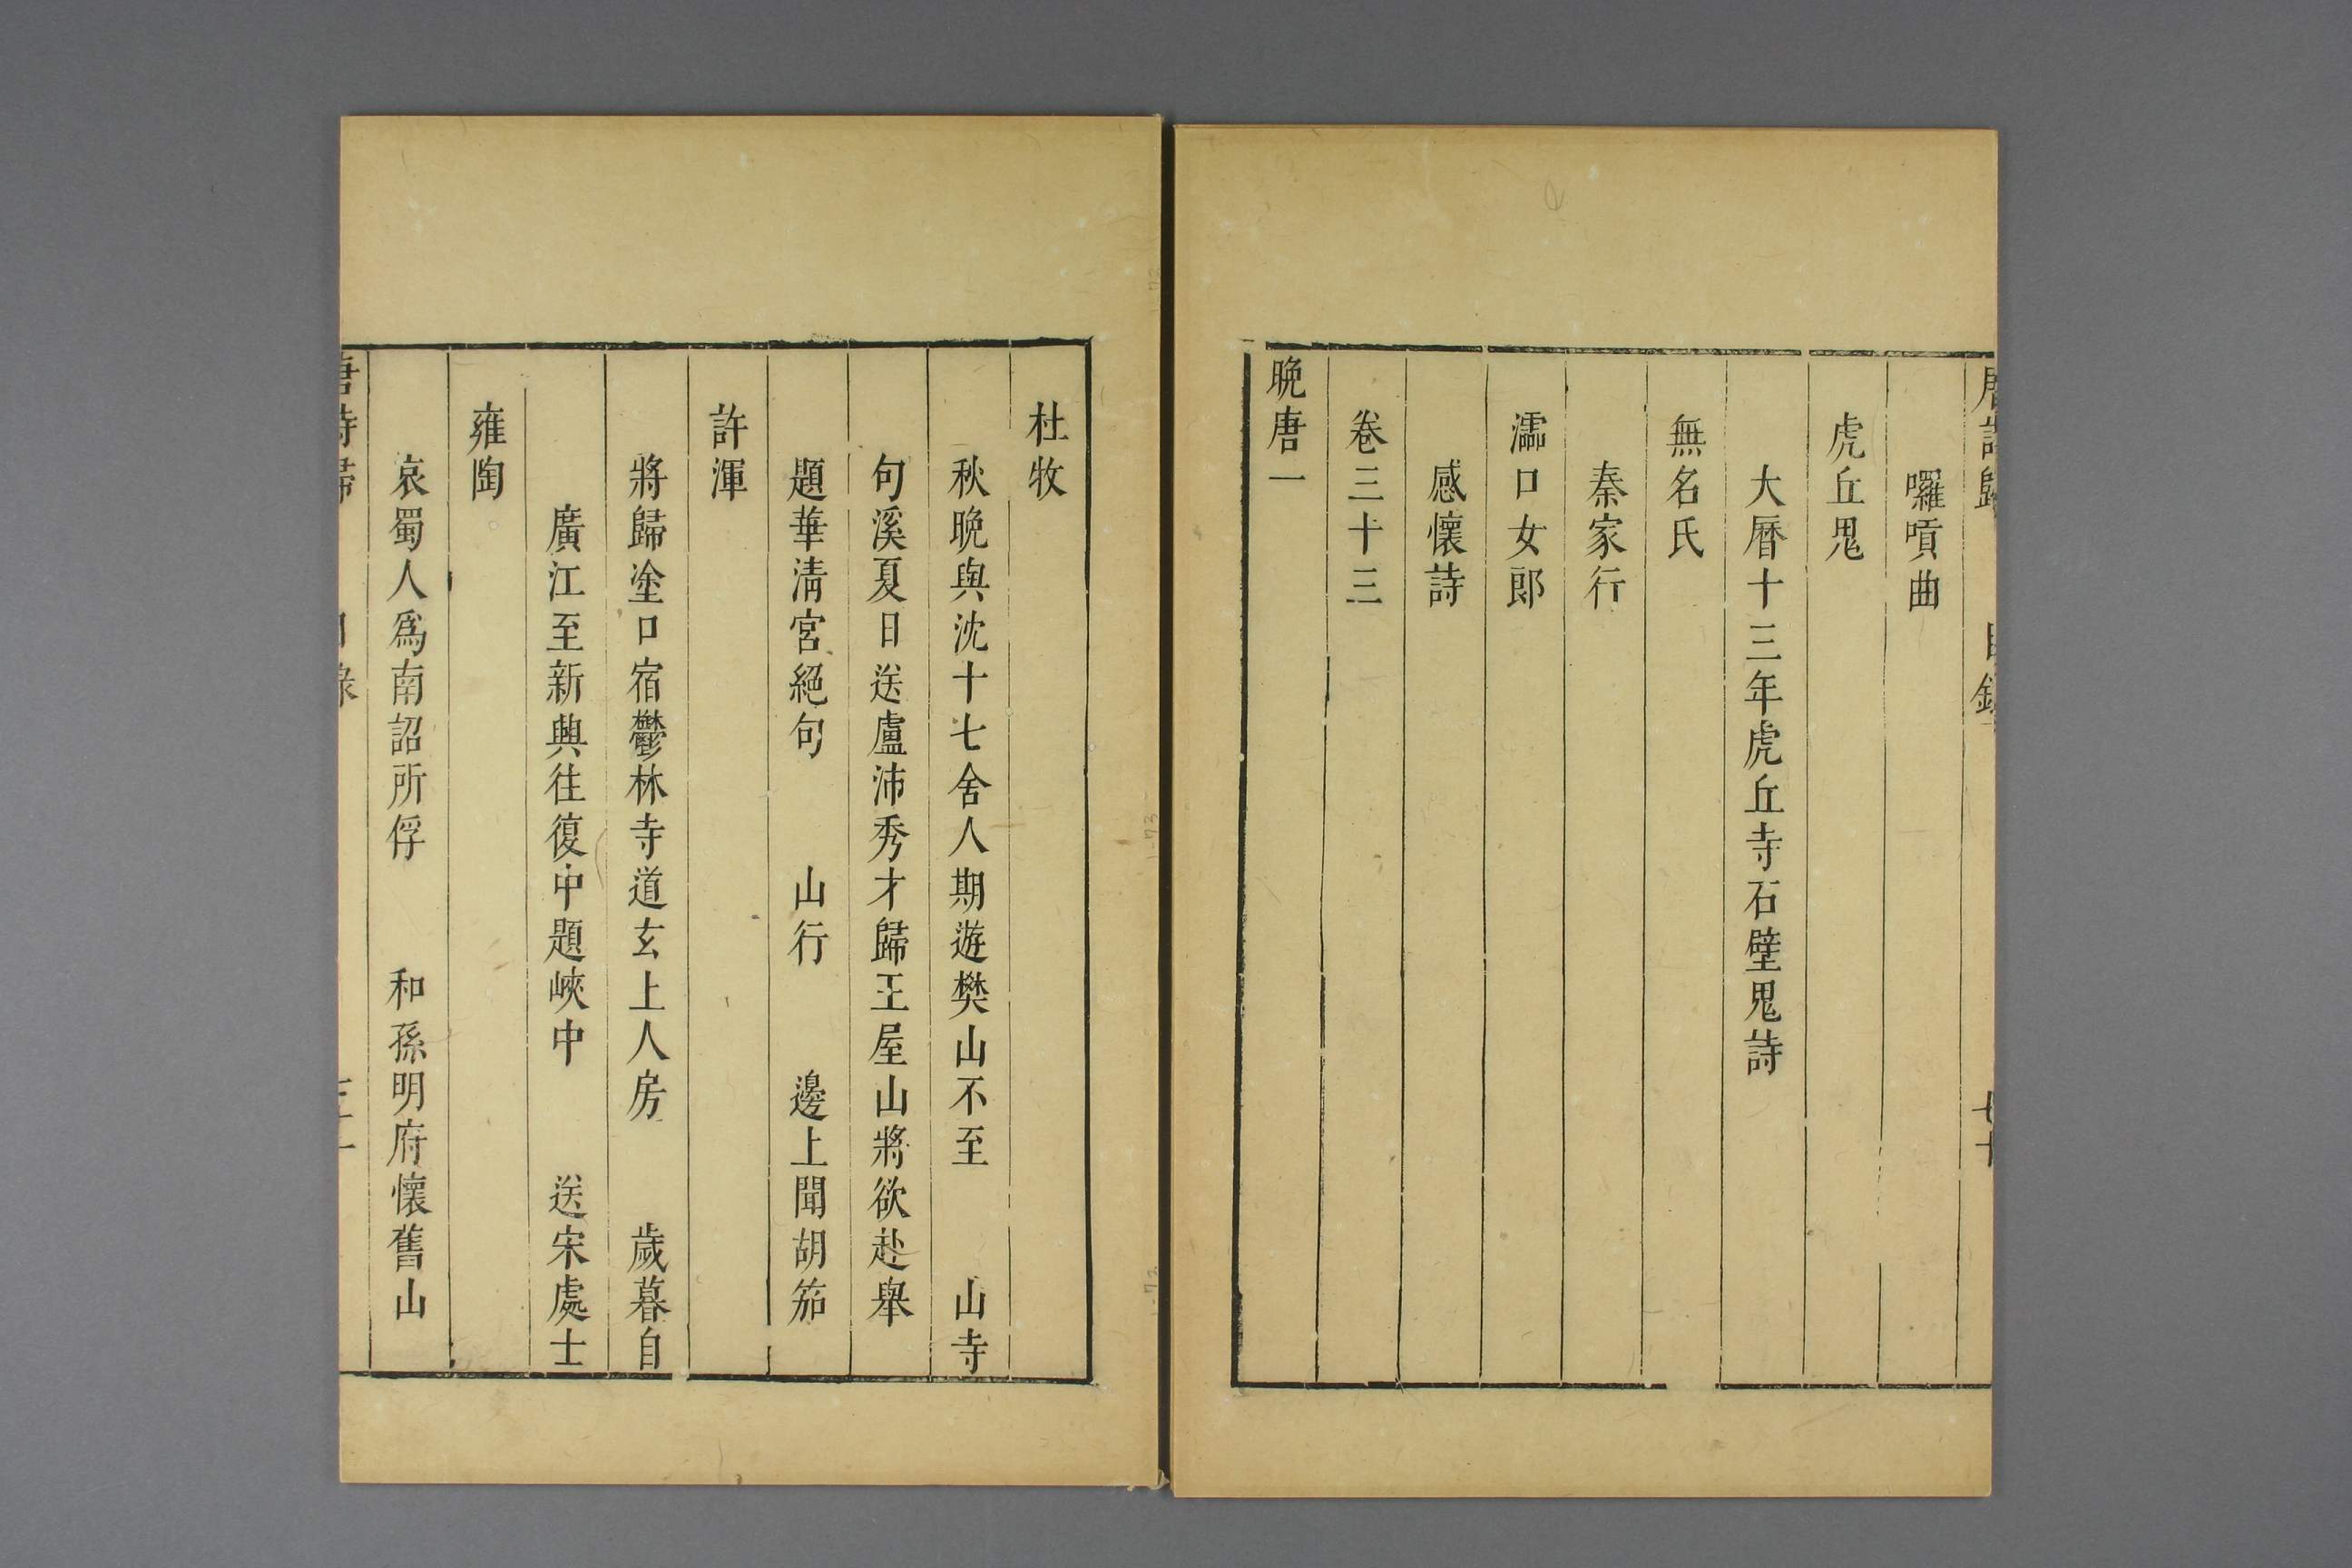 唐詩歸　目錄　七十
囉嗊曲
虎丘鬼
大曆十三年虎丘寺石壁鬼詩
無名氏
秦家行
灞口女郎
感懷詩
卷三十三
晚唐一
杜牧
秋晚與沈十七舍人期遊樊山不至　山寺
句溪夏日送盧沛秀才歸王屋山將欲赴舉
題華清宮絕句　山行　邊上聞胡笳
許渾
將歸塗口宿鬱林寺道玄上人房　歲暮自
廣江至新興往復中題峽中　送宋處士
雍陶
哀蜀人爲南詔所俘　和孫明府懷舊山
唐詩歸　目錄